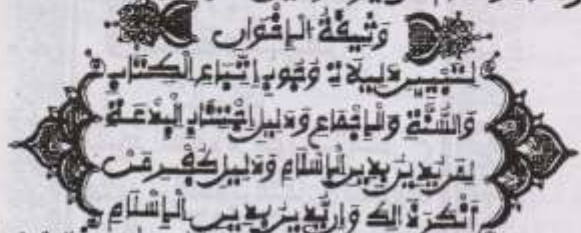 وَثِيقَةُ الْإِخْوَانِ
لِتَبْيِينِ دَلِيلَاتِ وُجُوبِ اتِّبَاعِ الْكِتَابِ
وَالسُّنَّةِ وَالْإِجْمَاعِ وَدَلِيلِ اجْتِنَابِ الْبِدْعَةِ
لِمَن يَدِينُ بِدِينِ الْإِسْلَامِ وَدَلِيلِ كُفْرِ مَنْ
أَنْكَرَ ذَالِكَ وَإِن يَدِينُ بِدِينِ الْإِسْلَامِ